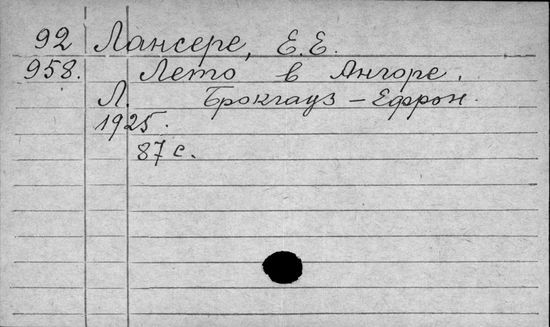 92 Лансере, Е.Е.
958. Лето в Ангоре.
Л. Брокгауз – Ефрон.
1925.
87 с.